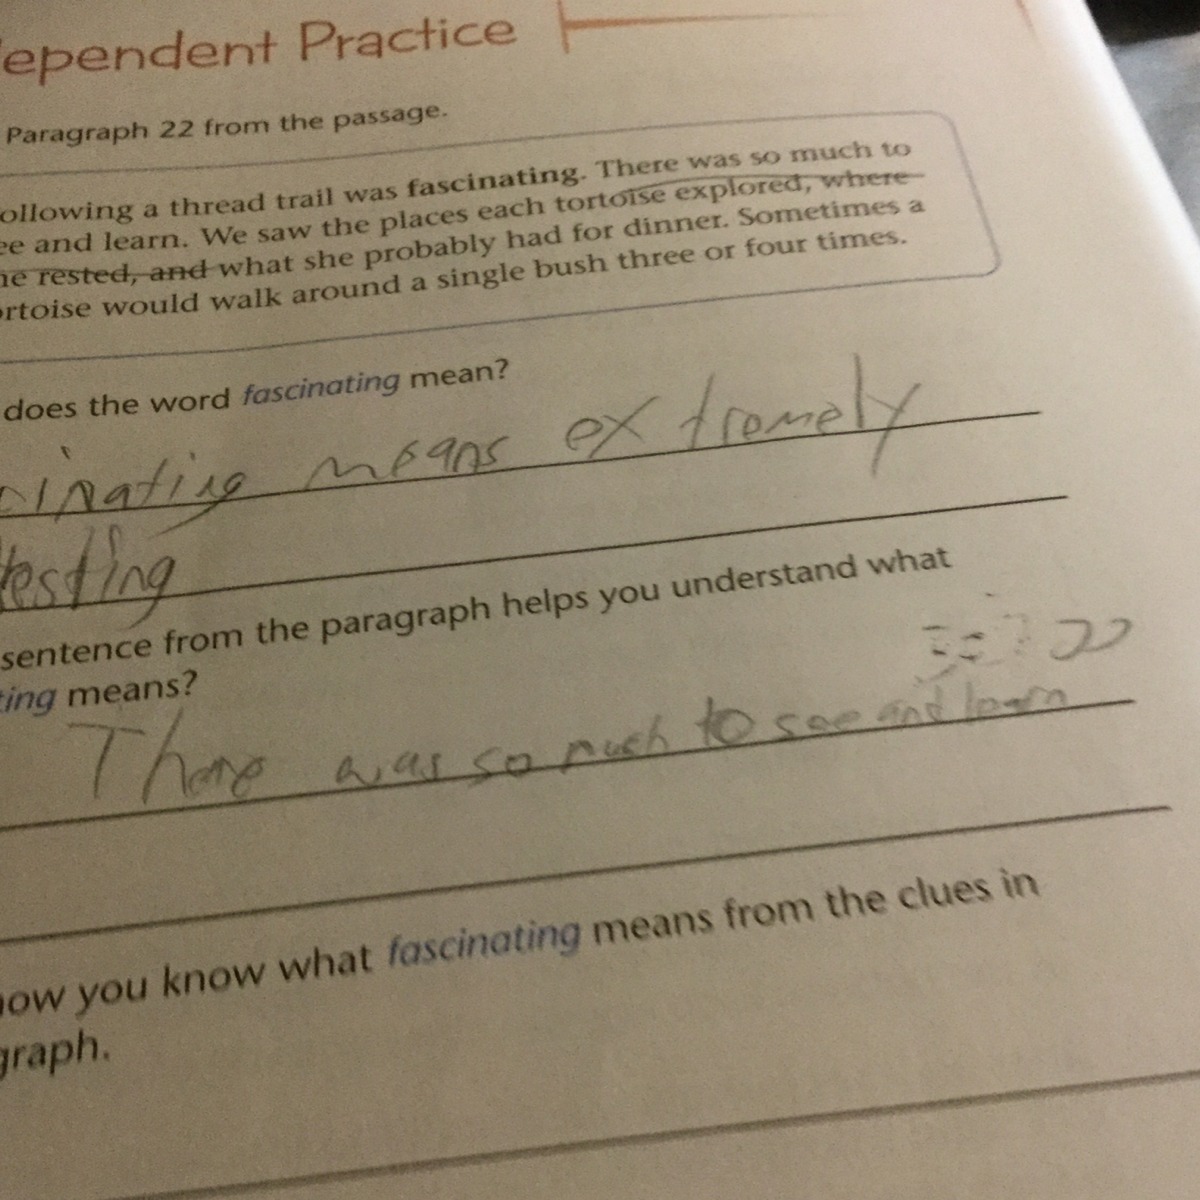 ependent Practice
Paragraph 22 from the passage.
ollowing a thread trail was fascinating. There was so much to
ee and learn. We saw the places each tortoise explored, where
he rested, and what she probably had for dinner. Sometimes a
ortoise would walk around a single bush three or four times.
does the word fascinating mean?
cinating means extremely
testing
sentence from the paragraph helps you understand what
ting means?
There was so much to see and learn
how you know what fascinating means from the clues in
graph.